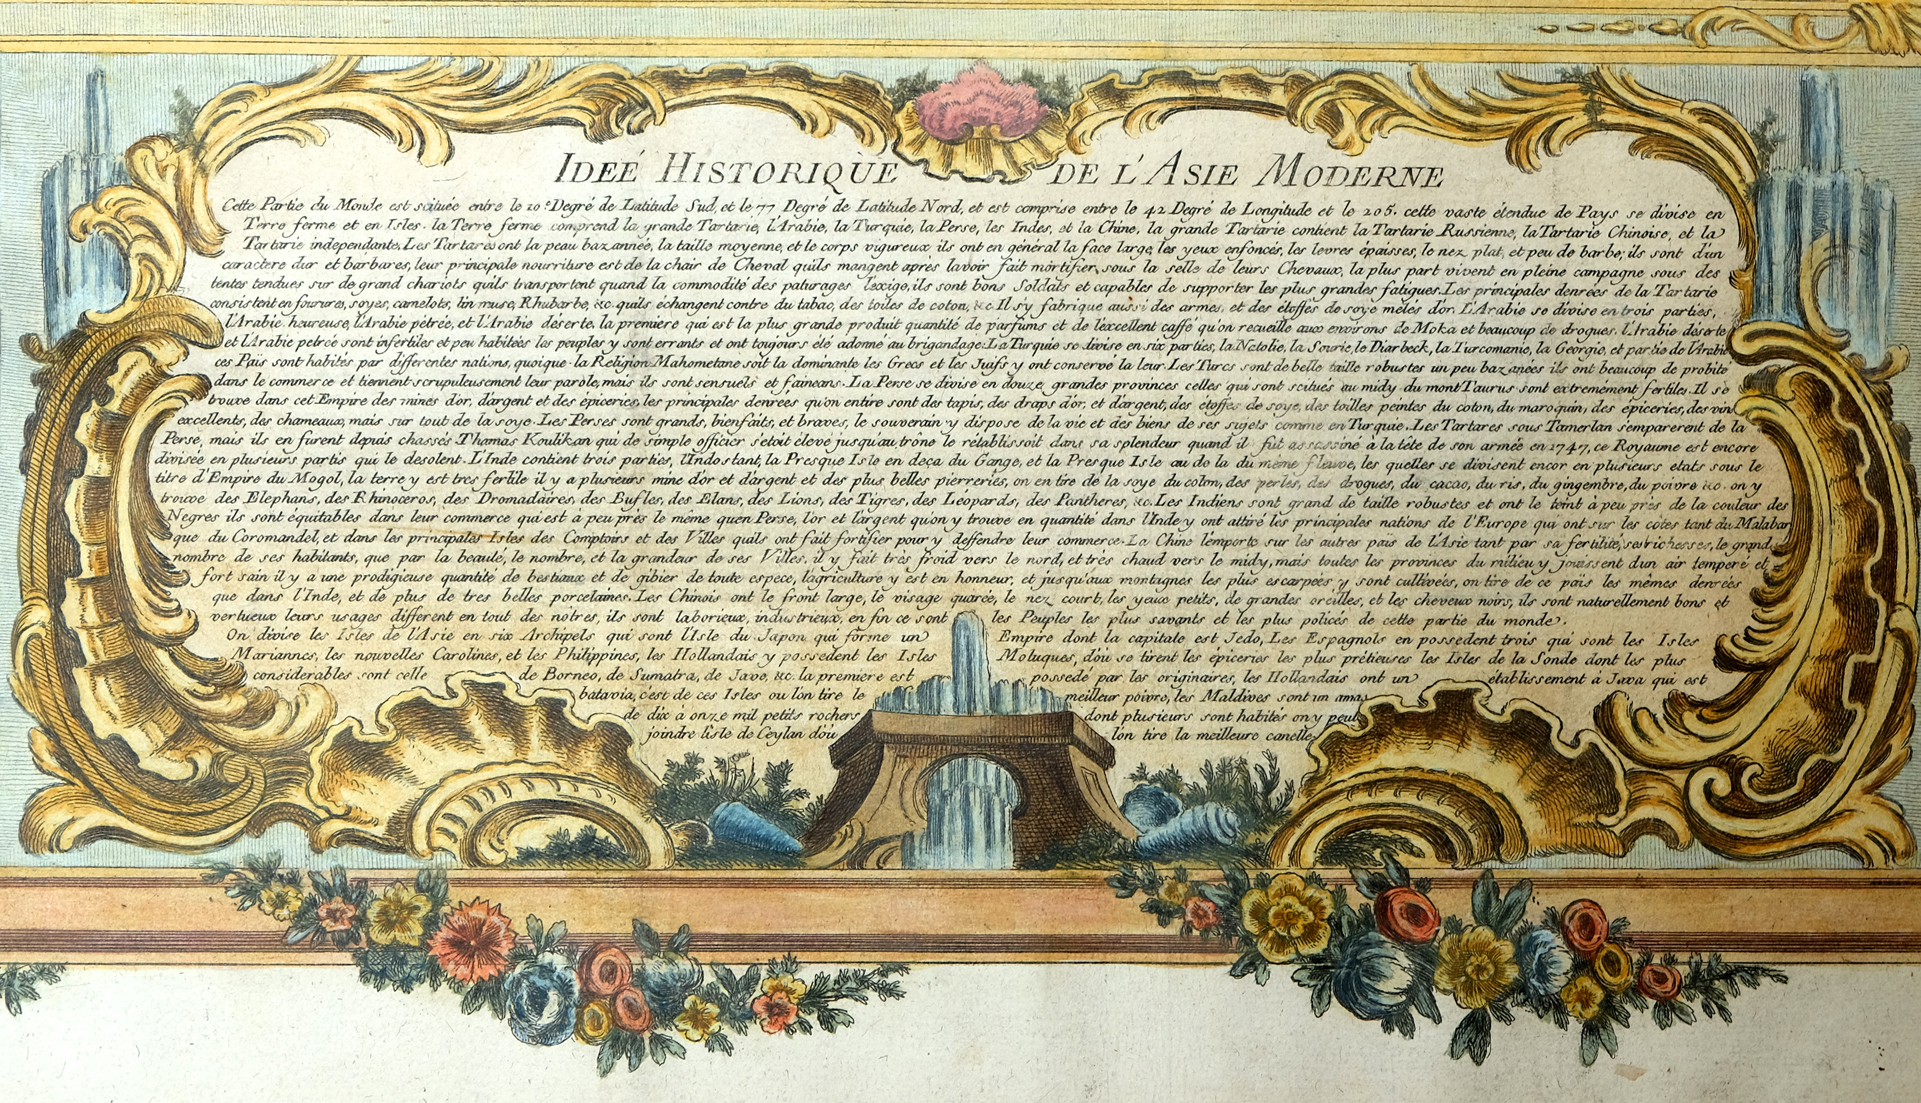 IDEÉ HISTORIQUE DE L'ASIE MODERNE
Cette Partie du Monde est scituée entre le 10e Degré de Latitude Sud, et le 77 Degré de Latitude Nord, et est comprise entre le 42 Degré de Longitude et le 205. cette vaste étendue de Pays se divise en
Terre ferme et en Isles. la Terre ferme comprend la grande Tartarie, l'Arabie, la Turquie, la Perse, les Indes, et la Chine, la grande Tartarie contient la Tartarie Russienne, la Tartarie Chinoise, et la
Tartarie independante, Les Tartares ont la peau bazannée, la taille moyenne, et le corps vigureux ils ont en général la face large, les yeux enfoncés, les levres épaisses, le nez plat, et peu de barbe, ils sont d'un
caractere dur et barbares, leur principale nourriture est de la chair de Cheval qu'ils mangent après lavoir fait mortifier, sous la selle de leurs Chevaux, la plus part vivent en pleine campagne sous des
tentes tendues sur de grand chariots qu'ils transportent quand la commodité des paturages l'exige, ils sont bons Soldats et capables de supporter les plus grandes fatigues. Les principales denrées de la Tartarie
consistent en foururres, soyes, camelots, lin musc, Rhubarbe, &c. quils échangent contre du tabac, des toiles de coton, &c. Il s'y fabrique aussi des armes, et des étoffes de soye mêlés d'or. L'Arabie se divise en trois parties,
l'Arabie heureuse, l'Arabie pétrée, et l'Arabie déserte, la premiere qui est la plus grande produit quantité de parfums et de lexcellent caffé qu'on recueille aux environs de Moka et beaucoup de drogues. l'Arabie déserte
et l'Arabie petreé sont infertiles et peu habitées les peuples y sont errants et ont toujours été adonné au brigandage. La Turquie se divise en six parties, la Natolie, la Sourie, le Diarbeck, la Turcomanie, la Georgie, et partie de l'Arabie
ces Païs sont habités par differentes nations, quoique la Religion Mahometane soit la dominante les Grecs et les Juifs y ont conservé la leur. Les Turcs sont de belle taille robustes un peu bazanées ils ont beaucoup de probité
dans le commerce et tiennent scrupuleusement leur parole, mais ils sont sensuels et faineans. La Perse se divise en douze grandes provinces celles qui sont scitués au midy du mont Taurus sont extremément fertiles. Il se
trouve dans cet Empire des mines d'or, d'argent et des épiceries, les principales denrees qu'on entire sont des tapis, des draps d'or, et d'argent, des étoffes de soye, des toilles peintes du coton, du maroquin, des épiceries, des vins
excellents, des chameaux, mais sur tout de la soye. Les Perses sont grands, bienfaits, et braves, le souverain y dispose de la vie et des biens de ses sujets comme en Turquie. Les Tartares sous Tamerlan s'emparerent de la
Perse, mais ils en furent depuis chassés. Thamas Koulikan qui de simple officier s'etoit élevé jusqu'au trône le rétablissoit dans sa splendeur quand il fut assassiné à la tête de son armée en 1747, ce Royaume est encore
divisée en plusieurs partis qui le desolent. L'Inde contient trois parties, l'Indostant, la Presque Isle en deça du Gange, et la Presque Isle au de la du même fleuve, les quelles se divisent encor en plusieurs etats sous le
titre d'Empire du Mogol, la terre y est tres fertile il y a plusieurs mine d'or et d'argent et des plus belles pierreries, on en tire de la soye du colon, des perles, des drogues, du cacao, du ris, du gingembre, du poivre &c. on y
trouve des Elephans, des Rhinoceros, des Dromadaires, des Bufles, des Elans, des Lions, des Tigres, des Léopards, des Pantheres, &c. Les Indiens sont grand de taille robustes et ont le teint à peu près de la couleur des
Negres ils sont équitables dans leur commerce qui est à peu près le même qu'en Perse, l'or et l'argent qu'on y trouve en quantité dans l'Inde y ont attiré les principales nations de l'Europe qui ont sur les côtes tant du Malabar
que du Coromandel, et dans les principales Isles des Comptoirs et des Villes quils ont fait fortifier pour y deffendre leur commerce. La Chine l'emporte sur les autres païs de l'Asie tant par sa fertilité, ses richesses, le grand
nombre de ses habitants, que par la beauté, le nombre, et la grandeur de ses Villes, il y fait très froid vers le nord, et très chaud vers le midy, mais toutes les provinces du milieu y jouissent d'un air temperé et
fort sain il y a une prodigieuse quantité de bestiaux et de gibier de toute espece, l'agriculture y est en honneur, et jusqu'aux montagnes les plus escarpées y sont cultivées, on tire de ce païs les mêmes denrées
que dans l'Inde, et de plus de tres belles porcelaines. Les Chinois ont le front large, le visage quarée, le nez court, les yeux petits, de grandes oreilles, et les cheveux noirs, ils sont naturellement bons et
vertueux leurs usages different en tout des nôtres, ils sont laborieux, industrieux, en fin ce sont les Peuples les plus savants et les plus policés de cette partie du monde.
On divise les Isles de l'Asie en six Archipels qui sont l'Isle du Japon qui forme un Empire dont la capitale est Jedo, Les Espagnols en possedent trois qui sont les Isles
Mariannes, les nouvelles Carolines, et les Philippines, les Hollandais y possedent les Isles Moluques, d'où se tirent les épiceries les plus prétieuses les Isles de la Sonde dont les plus
considerables sont celle de Borneo, de Sumatra, de Jave, &c. la premiere est possedé par les originaires, les Hollandais ont un établissement à Java qui est
batavia, c'est de ces Isles ou l'on tire le meilleur poivre, les Maldives sont un amas
de dix à onze mil petits rochers dont plusieurs sont habités on y peut
joindre l'isle de Ceylan d'où l'on tire la meilleure canelle